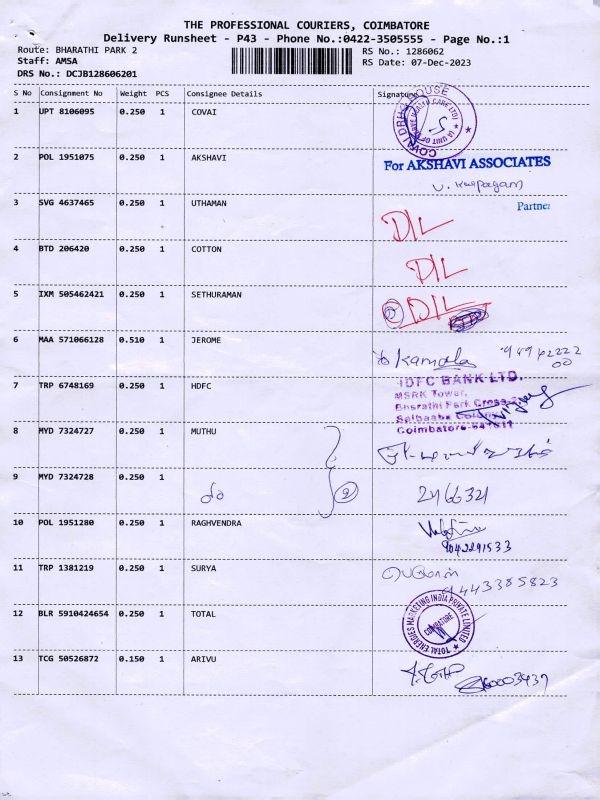 THE PROFESSIONAL COURIERS, COIMBATORE
Delivery Runsheet - P43 - Phone No.:0422-3505555 - Page No.:1
Route: BHARATHI PARK 2 RS No.: 1286062
Staff: AMSA RS Date: 07-Dec-2023
DRS No.: DCJB128606201
S No Consignment No Weight PCS Consignee Details Signature
1 UPT 8106095 0.250 1 COVAI
COVAI DRUG HOUSE
2 POL 1951075 0.250 1 AKSHAVI
For AKSHAVI ASSOCIATES
Partner
3 SVG 4637465 0.250 1 UTHAMAN
DIL
4 BTD 206420 0.250 1 COTTON
DIL
5 IXM 505462421 0.250 1 SETHURAMAN
DIL
6 MAA 571066128 0.510 1 JEROME
Kamala
7 TRP 6748169 0.250 1 HDFC
IDFC BANK LTD.
MSRK Tower,
Bharathi Park Cross
Saibaba Colony
Coimbatore-641011
8 MYD 7324727 0.250 1 MUTHU
9 MYD 7324728 0.250 1
2
2466321
10 POL 1951280 0.250 1 RAGHVENDRA
9042291533
11 TRP 1381219 0.250 1 SURYA
9443385823
12 BLR 5910424654 0.250 1 TOTAL
TOTAL ENERGIES MARKETING INDIA PRIVATE LIMITED
COIMBATORE
13 TCG 50526872 0.150 1 ARIVU